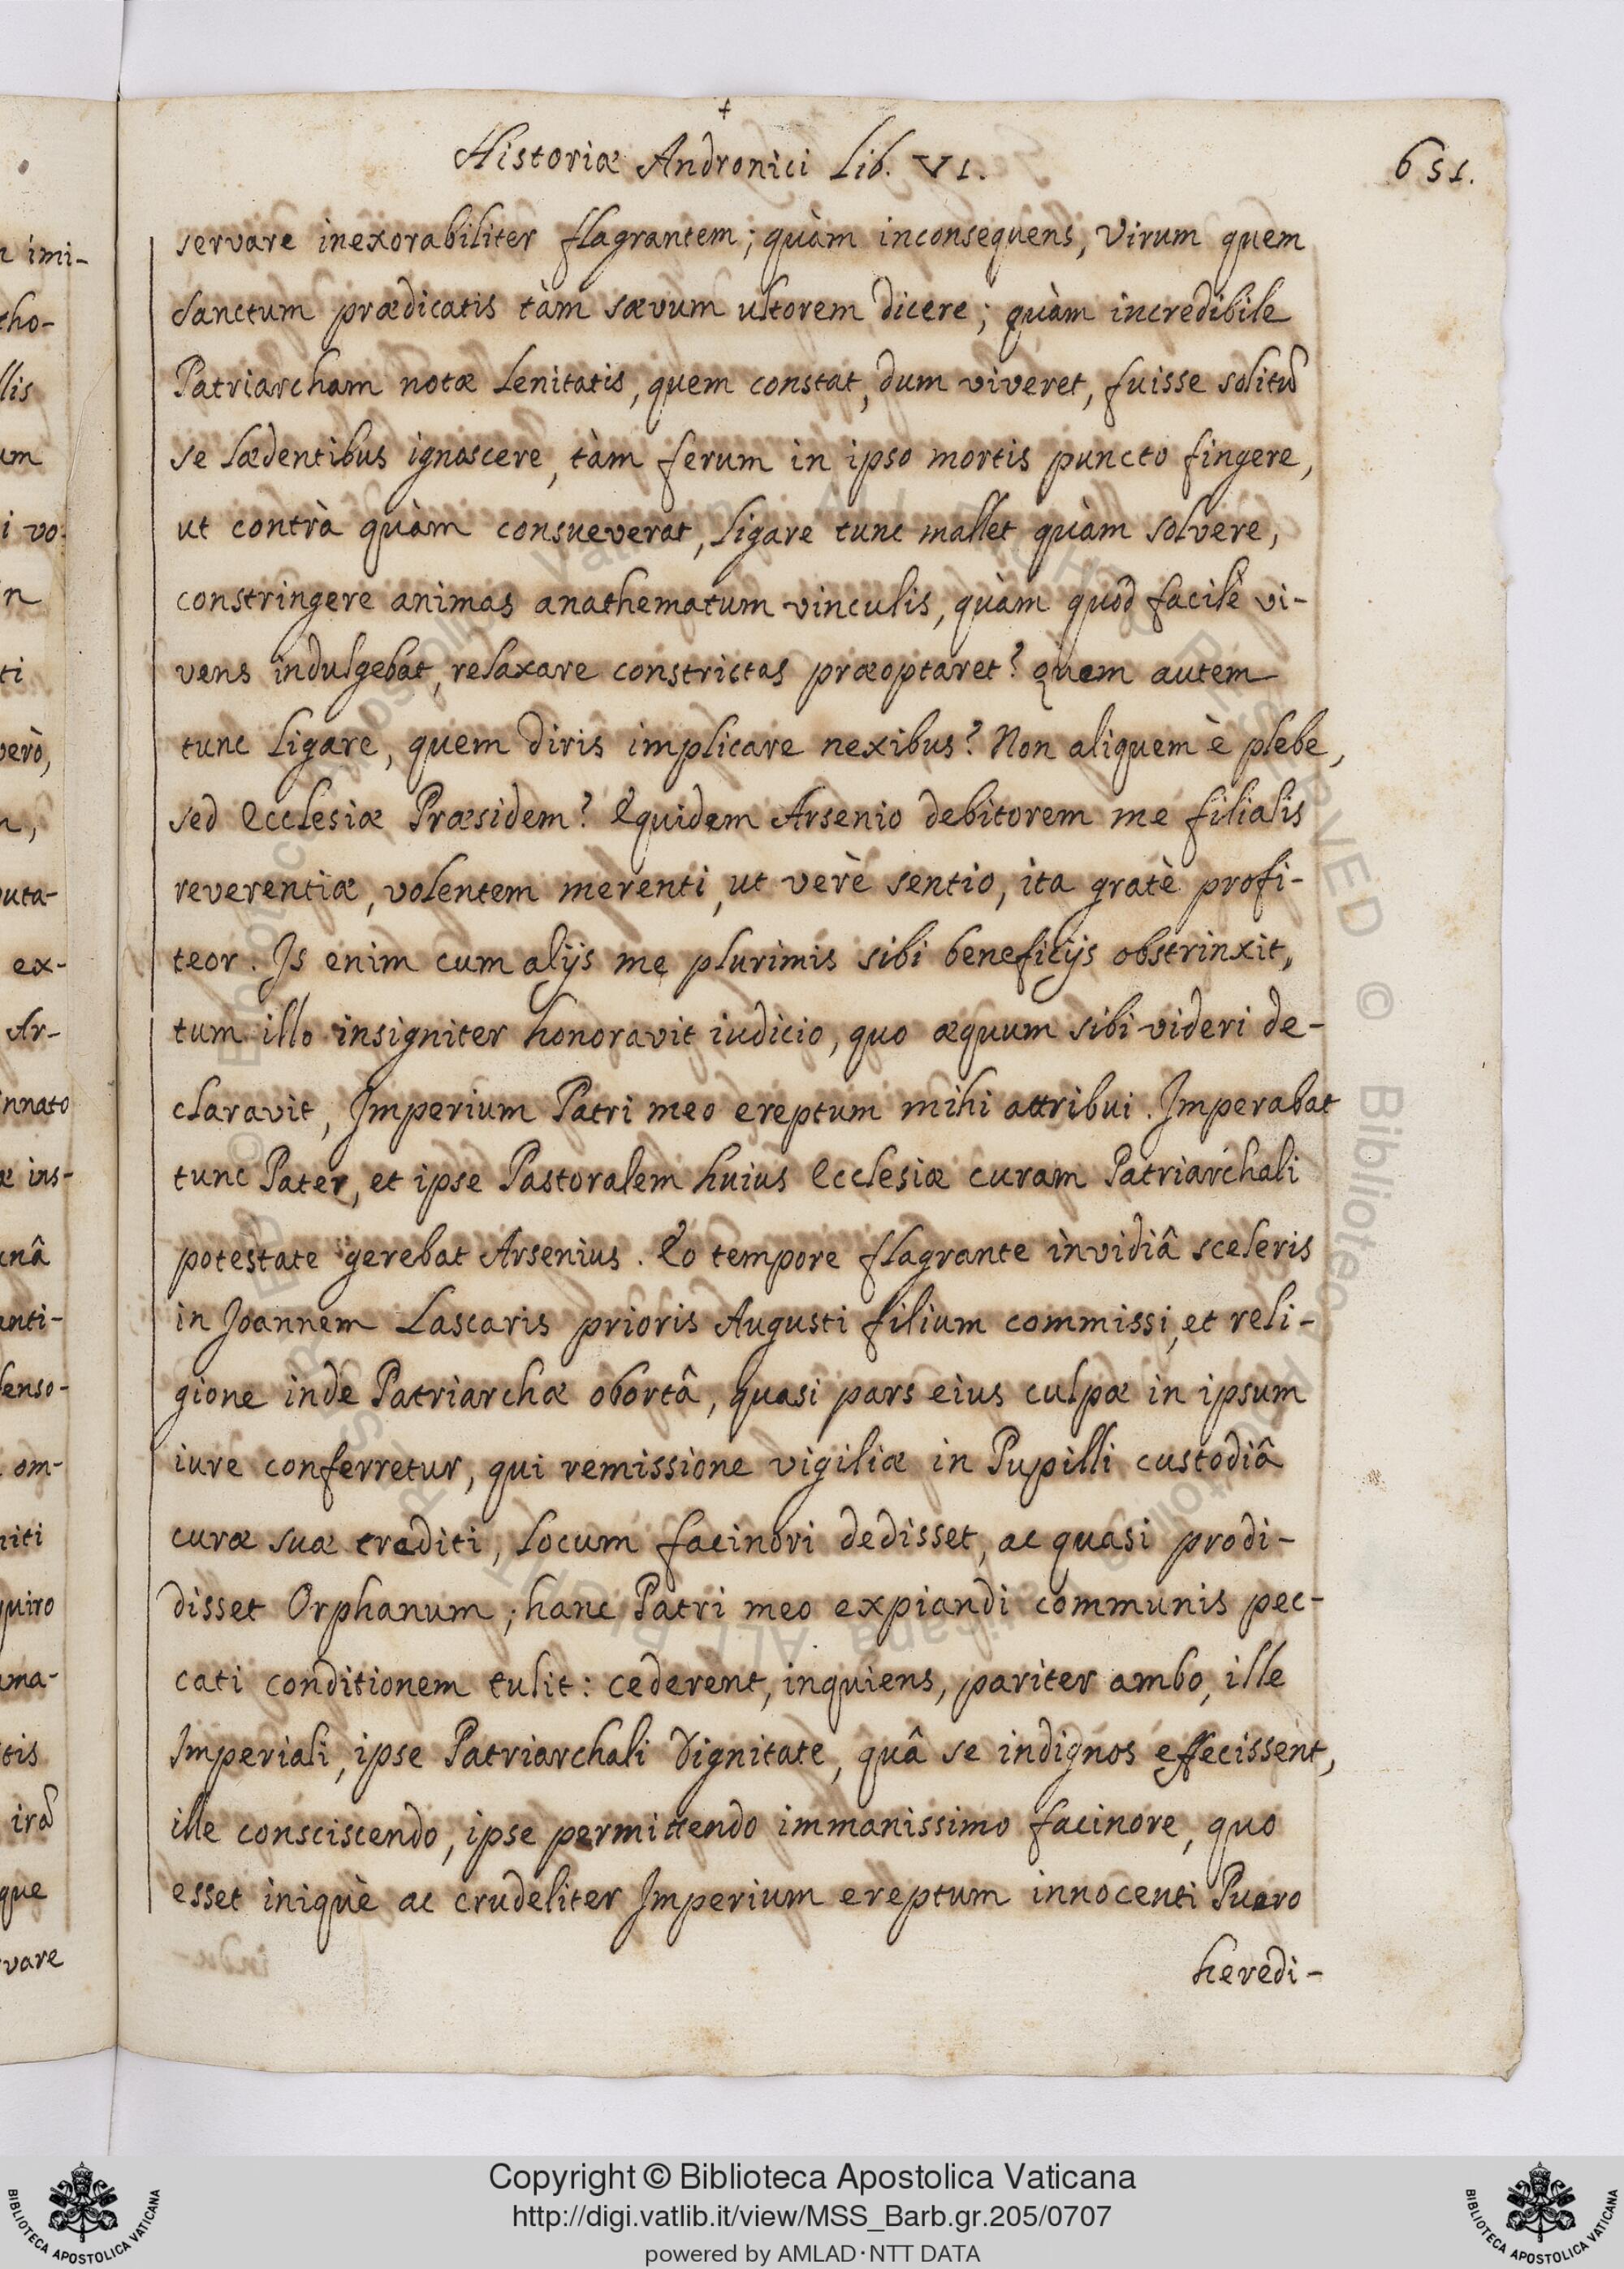 Historiæ Andronici Lib. VI.
651.
servare inexorabiliter flagrantem; quàm inconsequens, Virum quem
Sanctum prædicatis tàm sævum ultorem dicere; quàm incredibile
Patriarcham notæ Lenitatis, quem constat, dum viveret, fuisse solitũ
se Lædentibus ignoscere, tàm ferum in ipso mortis puncto fingere,
ut contrà quàm consueverat, Ligare tunc mallet quàm solvere,
constringere animas anathematum vinculis, quàm quod facilè vi-
vens indulgebat, relaxare constrictas præoptaret? Quem autem
tunc Ligare, quem Diris implicare nexibus? Non aliquem è plebe,
sed Ecclesiæ Præsidem? Equidem Arsenio debitorem me filialis
reverentiæ, volentem merenti, ut verè sentio, ita gratè profi-
teor. Is enim cum alijs me plurimis sibi beneficijs obstrinxit,
tum illo insigniter honoravit iudicio, quo æquum sibi videri de-
claravit, Imperium Patri meo ereptum mihi attribui. Imperabat
tunc Pater, et ipse Pastoralem huius Ecclesiæ curam Patriarchali
potestate gerebat Arsenius. Eo tempore flagrante invidiâ sceleris
in Joannem Lascaris prioris Augusti filium commissi, et reli-
gione inde Patriarchæ obortâ, quasi pars eius culpæ in ipsum
iure conferretur, qui remissione vigiliæ in Pupilli custodiâ
curæ suæ traditi, Locum facinori dedisset, ac quasi prodi-
disset Orphanum; hanc Patri meo expiandi communis pec-
cati conditionem tulit: cederent, inquiens, pariter ambo, ille
Imperiali, ipse Patriarchali Dignitate, quâ se indignos effecissent,
ille consciscendo, ipse permittendo immanissimo facinore, quo
esset iniquè ac crudeliter Imperium ereptum innocenti Puero
heredi-
imi-
tho-
llis
um
i vo-
n
ti
verò,
n,
puta-
ex-
Ar-
innato
æ ins-
anti-
om-
quiro
ma-
tis
que
vare
Copyright © Biblioteca Apostolica Vaticana
http://digi.vatlib.it/view/MSS_Barb.gr.205/0707
powered by AMLAD·NTT DATA
BIBLIOTECA APOSTOLICA VATICANA
BIBLIOTECA APOSTOLICA VATICANA